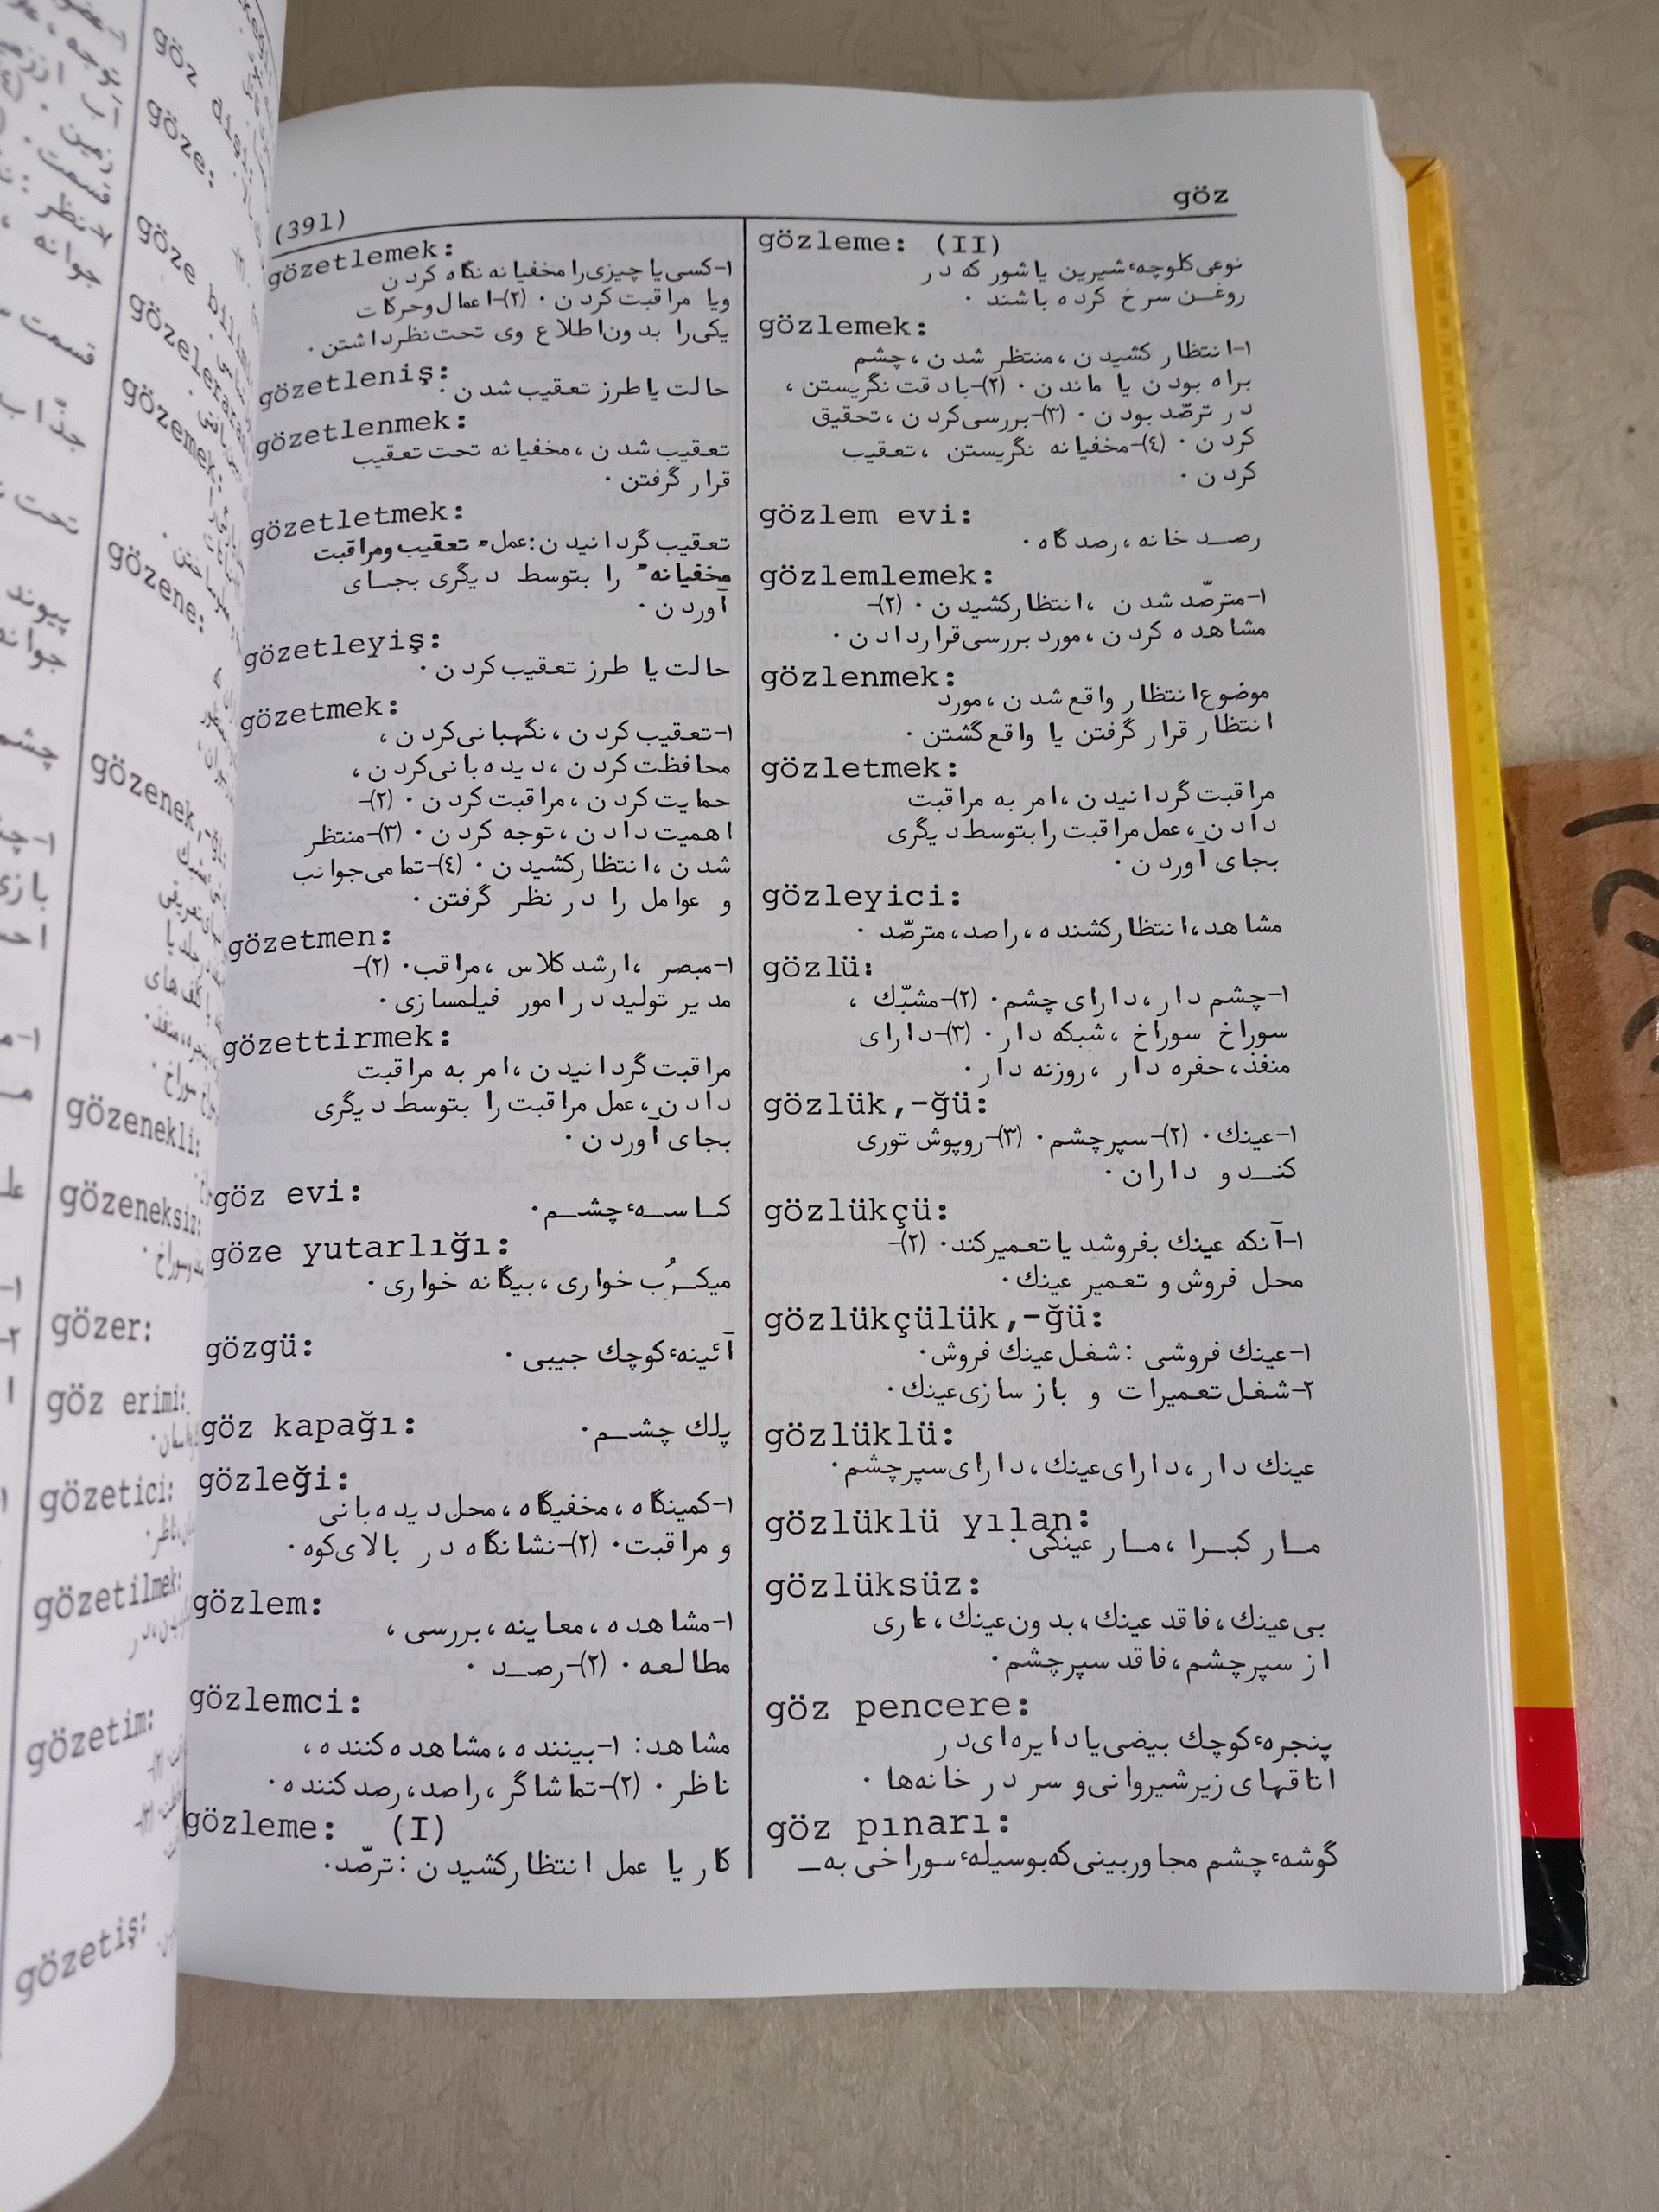 göz
(391)
gözetlemek:
۱-کسی یا چیزی را مخفیانه نگاه کردن
ویا مراقبت کردن . (۲)-اعمال وحرکات
یکی را بدون اطلاع وی تحت نظر داشتن .
gözetleniş:
حالت یا طرز تعقیب شدن .
gözetlenmek:
تعقیب شدن ، مخفیانه تحت تعقیب
قرار گرفتن .
gözetletmek:
تعقیب گردانیدن : عمل " تعقیب ومراقبت
مخفیانه " را بتوسط دیگری بجای
آوردن .
gözetleyiş:
حالت یا طرز تعقیب کردن .
gözetmek:
۱-تعقیب کردن ، نگهبانی کردن ،
محافظت کردن ، دیده بانی کردن ،
حمایت کردن ، مراقبت کردن . (۲)-
اهمیت دادن ، توجه کردن . (۳)-منتظر
شدن ، انتظار کشیدن . (٤)-تمامی جوانب
و عوامل را در نظر گرفتن .
gözetmen:
۱-مبصر ، ارشد کلاس ، مراقب . (۲)-
مدیر تولید در امور فیلمسازی .
gözettirmek:
مراقبت گردانیدن ، امر به مراقبت
دادن ، عمل مراقبت را بتوسط دیگری
بجای آوردن .
göz evi:
کاسهٔ چشم .
göze yutarlığı:
میکرُب خواری ، بیگانه خواری .
gözgü:
آئینهٔ کوچك جیبی .
göz kapağı:
پلك چشم .
gözleği:
۱-کمینگاه ، مخفیگاه ، محل دیده بانی
و مراقبت . (۲)-نشانگاه در بالای کوه .
gözlem:
۱-مشاهده ، معاینه ، بررسی ،
مطالعه . (۲)-رصد .
gözlemci:
مشاهد : ۱-بیننده ، مشاهده کننده ،
ناظر . (۲)-تماشاگر ، راصد ، رصد کننده .
gözleme: (I)
کار یا عمل انتظار کشیدن : ترصّد .
gözleme: (II)
نوعی کلوچهٔ شیرین یا شور که در
روغن سرخ کرده باشند .
gözlemek:
۱-انتظار کشیدن ، منتظر شدن ، چشم
براه بودن یا ماندن . (۲)-با دقت نگریستن ،
در ترصّد بودن . (۳)-بررسی کردن ، تحقیق
کردن . (٤)-مخفیانه نگریستن ، تعقیب
کردن .
gözlem evi:
رصد خانه ، رصدگاه .
gözlemlemek:
۱-مترصّد شدن ، انتظار کشیدن . (۲)-
مشاهده کردن ، مورد بررسی قرار دادن .
gözlenmek:
موضوع انتظار واقع شدن ، مورد
انتظار قرار گرفتن یا واقع گشتن .
gözletmek:
مراقبت گردانیدن ، امر به مراقبت
دادن ، عمل مراقبت را بتوسط دیگری
بجای آوردن .
gözleyici:
مشاهد ، انتظار کشنده ، راصد ، مترصّد .
gözlü:
۱-چشم دار ، دارای چشم . (۲)-مشبّك ،
سوراخ سوراخ ، شبکه دار . (۳)-دارای
منفذ ، حفره دار ، روزنه دار .
gözlük,-ğü:
۱-عینك . (۲)-سپر چشم . (۳)-روپوش توری
کندو داران .
gözlükçü:
۱-آنکه عینك بفروشد یا تعمیر کند . (۲)-
محل فروش و تعمیر عینك .
gözlükçülük,-ğü:
۱-عینك فروشی : شغل عینك فروش .
۲-شغل تعمیرات و باز سازی عینك .
gözlüklü:
عینك دار ، دارای عینك ، دارای سپر چشم .
gözlüklü yılan:
مار کبرا ، مار عینکی .
gözlüksüz:
بی عینك ، فاقد عینك ، بدون عینك ، عاری
از سپر چشم ، فاقد سپر چشم .
göz pencere:
پنجرهٔ کوچك بیضی یا دایره ای در
اتاقهای زیر شیروانی و سر در خانه ها .
göz pınarı:
گوشهٔ چشم مجاور بینی که بوسیلهٔ سوراخی به
göze:
gözemek:
gözene:
gözenek,
gözenekli:
gözeneksiz:
gözer:
göz erimi:
gözetici:
gözetilmek:
gözetim:
gözetiş: